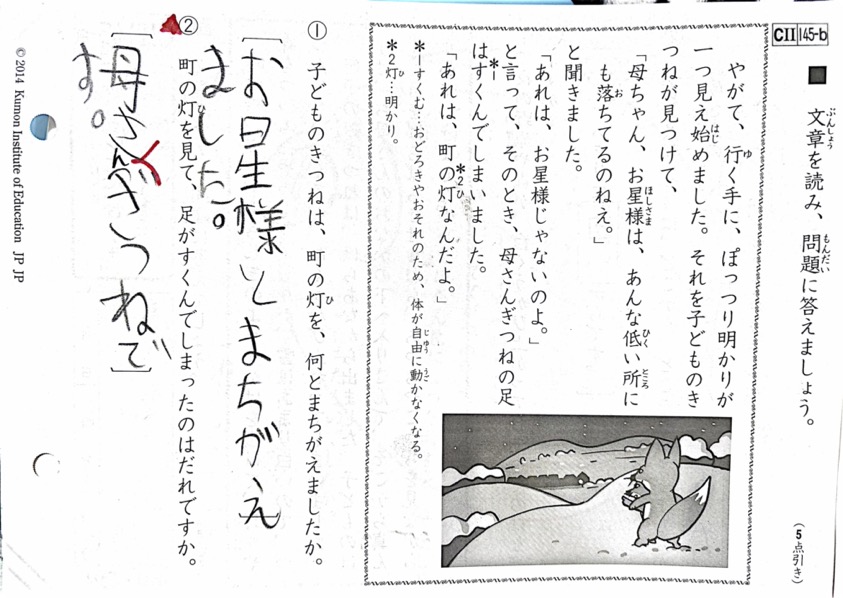 CII 145-b
■ 文章を読み、問題に答えましょう。
ぶんしょう
もんだい
(5点引き)
やがて、行く手に、ぽっつり明かりが
一つ見え始めました。それを子どものき
つねが見つけて、
「母ちゃん、お星様は、あんな低い所に
も落ちてるのねえ。」
と聞きました。
「あれは、お星様じゃないのよ。」
と言って、そのとき、母さんぎつねの足
はすくんでしまいました。
「あれは、町の灯なんだよ。」
*1すくむ…おどろきやおそれのため、体が自由に動かなくなる。
*2灯…明かり。
① 子どものきつねは、町の灯を、何とまちがえましたか。
[お星様とまちがえ
ました。]
② 町の灯を見て、足がすくんでしまったのはだれですか。
[母さんぎつねで
す。]
© 2014 Kumon Institute of Education JP JP